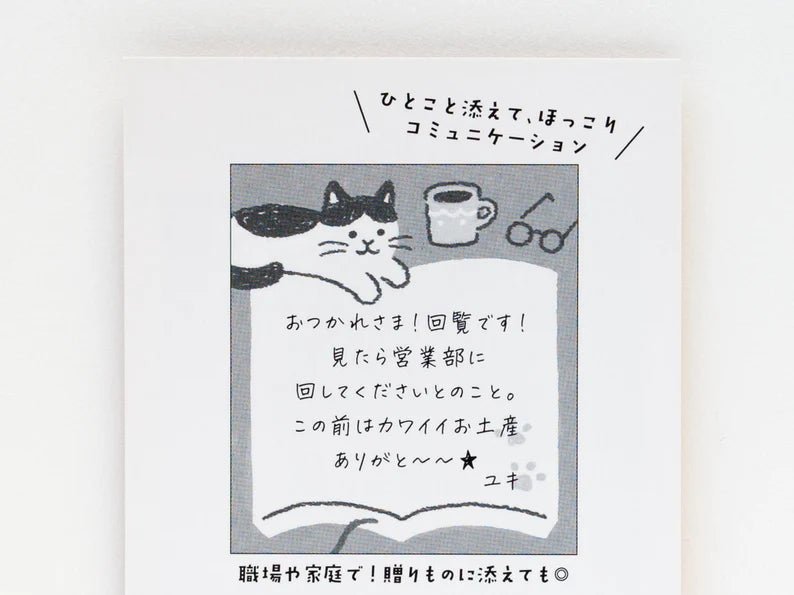 ひとこと添えて、ほっこり
コミュニケーション
おつかれさま！回覧です！
見たら営業部に
回してくださいとのこと。
この前はカワイイお土産
ありがと〜〜★
ユキ
職場や家庭で！贈りものに添えても◎